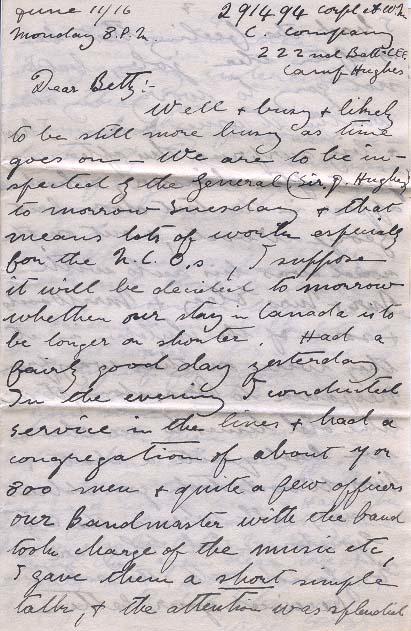 June 11/16 291494 Corpl
Monday 8 P.M. C. Company
222nd Batt. C.E.F.
Camp Hughes
Dear Betty:-
Well & busy & likely
to be still more busy as time
goes on - We are to be in-
spected by the General (Sir. S. Hughes)
to morrow Tuesday & that
means lots of work especially
for the N.C.O.s, I suppose
it will be decided to morrow
whether our stay in Canada is to
be longer or shorter. Had a
fairly good day yesterday
In the evening I conducted
service in the lines & had a
congregation of about 7 or
800 men & quite a few officers
our Bandmaster with the band
took charge of the music etc,
I gave them a short simple
talk, & the attention was splendid